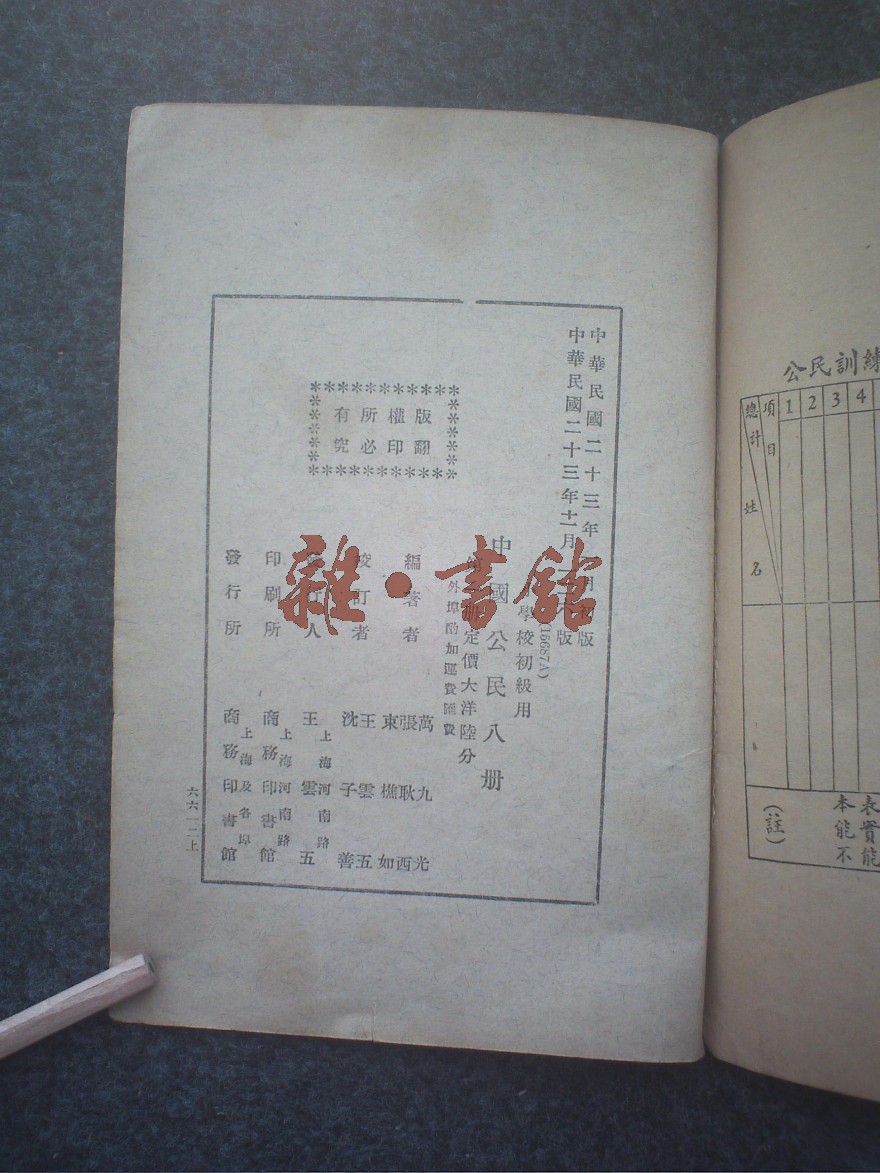 公民訓練
項目
總計
姓名
1 2 3 4
(註)
表實能
本能不
中華民國二十三年 月初版
中華民國二十三年十一月 版
16687A)
學校初級用
中國公民八册
册定價大洋陸分
外埠酌加運費匯費
版權所有
翻印必究
編著者 萬九光
張耿西
束樵如
校訂者 王雲五
沈子善
行人 上海河南路
王雲五
印刷所 上海河南路
商務印書館
發行所 上海及各埠
商務印書館
六六一二上
雜·書舘